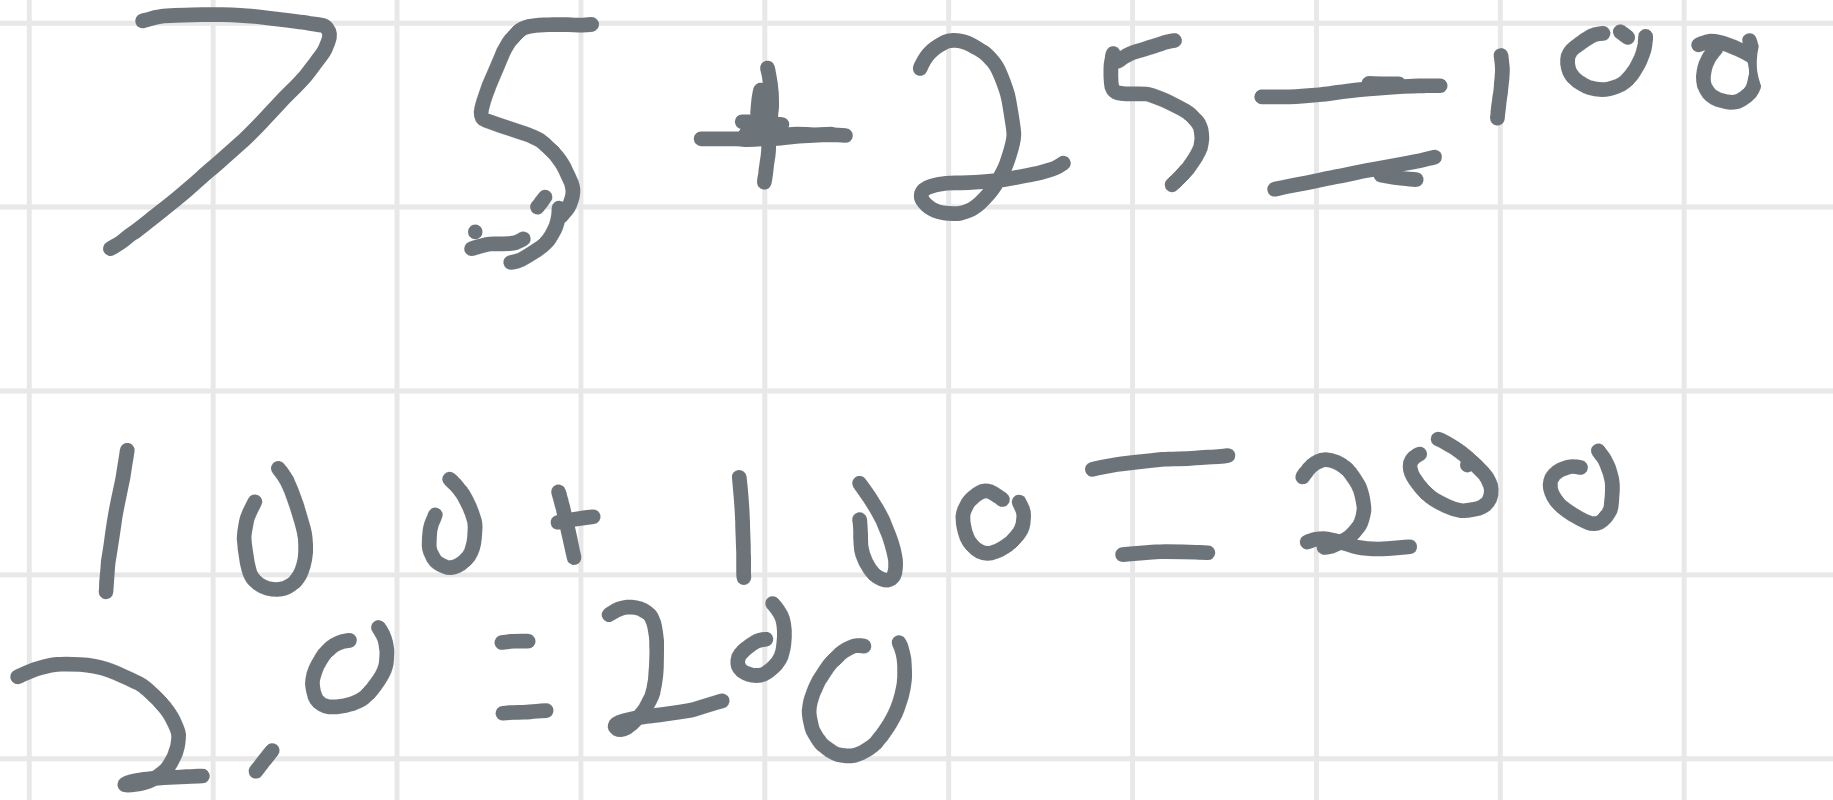 75+25=100
100+100=200
2,0=200